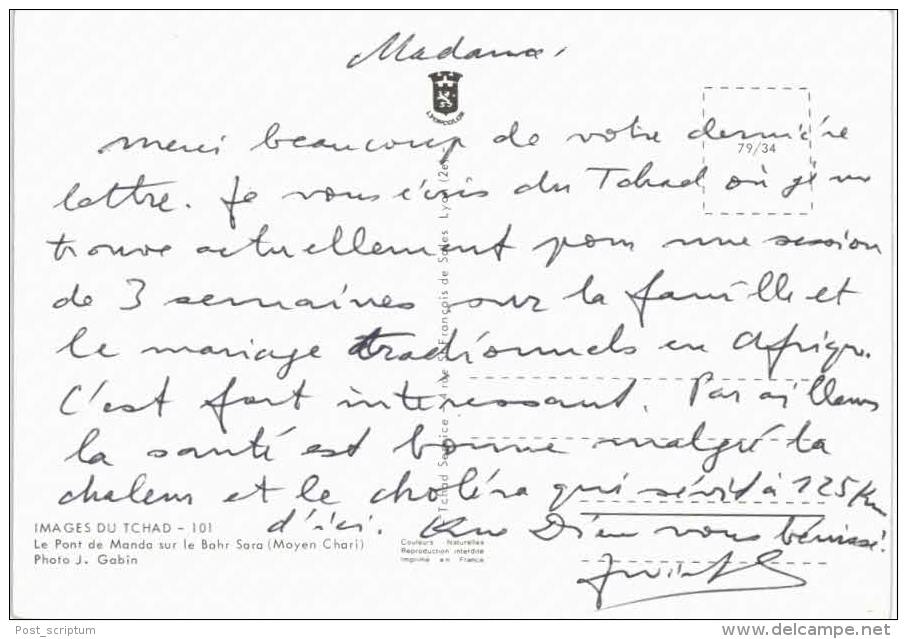 Madame,
LYONCOLOR
merci beaucoup de votre dernière
79/34
lettre. Je vous écris du Tchad où je me
trouve actuellement pour une session
de 3 semaines sur la famille et
le mariage traditionnels en Afrique.
C'est fort intéressant. Par ailleurs
la santé est bonne malgré la
chaleur et le choléra qui sévit à 125 Km
d'ici. Que Dieu vous bénisse!
Tchad Service, 4 rue St François de Sales Lyon (2e)
IMAGES DU TCHAD - 101
Le Pont de Manda sur le Bahr Sara (Moyen Chari)
Photo J. Gabin
Couleurs Naturelles
Reproduction interdite
Imprimé en France
Post_scriptum
delcampe.net